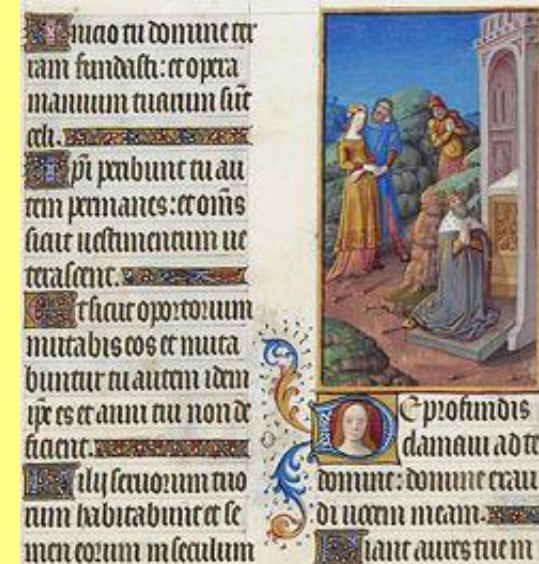 Inicio tu domine ter
ram fundasti: et opera
manuum tuarum sūt
celi.
Ipi peribunt tu au
tem permanes: et om̄s
sicut vestimentum ve
terascent.
Et sicut oportorium
mutabis eos et muta
buntur tu autem idem
ip̄e es et anni tui non de
ficient.
Filij servorum tuo
rum habitabunt et se
men eorum in seculum
De profundis
clamavi ad te
domine: domine exau
di vocem meam.
Fiant aures tue in